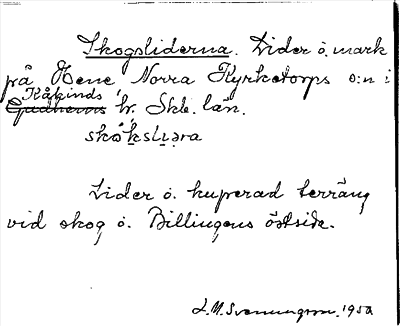 Skogsliderna. Lider ö. mark
på Hene Norra Kyrketorps s:n i
Kåkinds
Gudhems hr. Skb. län.
skóksli̱ǝra
Lider ö. kuperad terräng
vid skog ö. Billingens östsida.
L.M. Svennungsson. 1950